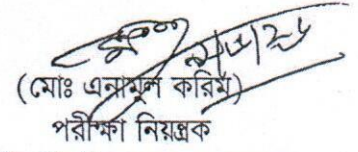 (মোঃ এনামুল করিম)
পরীক্ষা নিয়ন্ত্রক